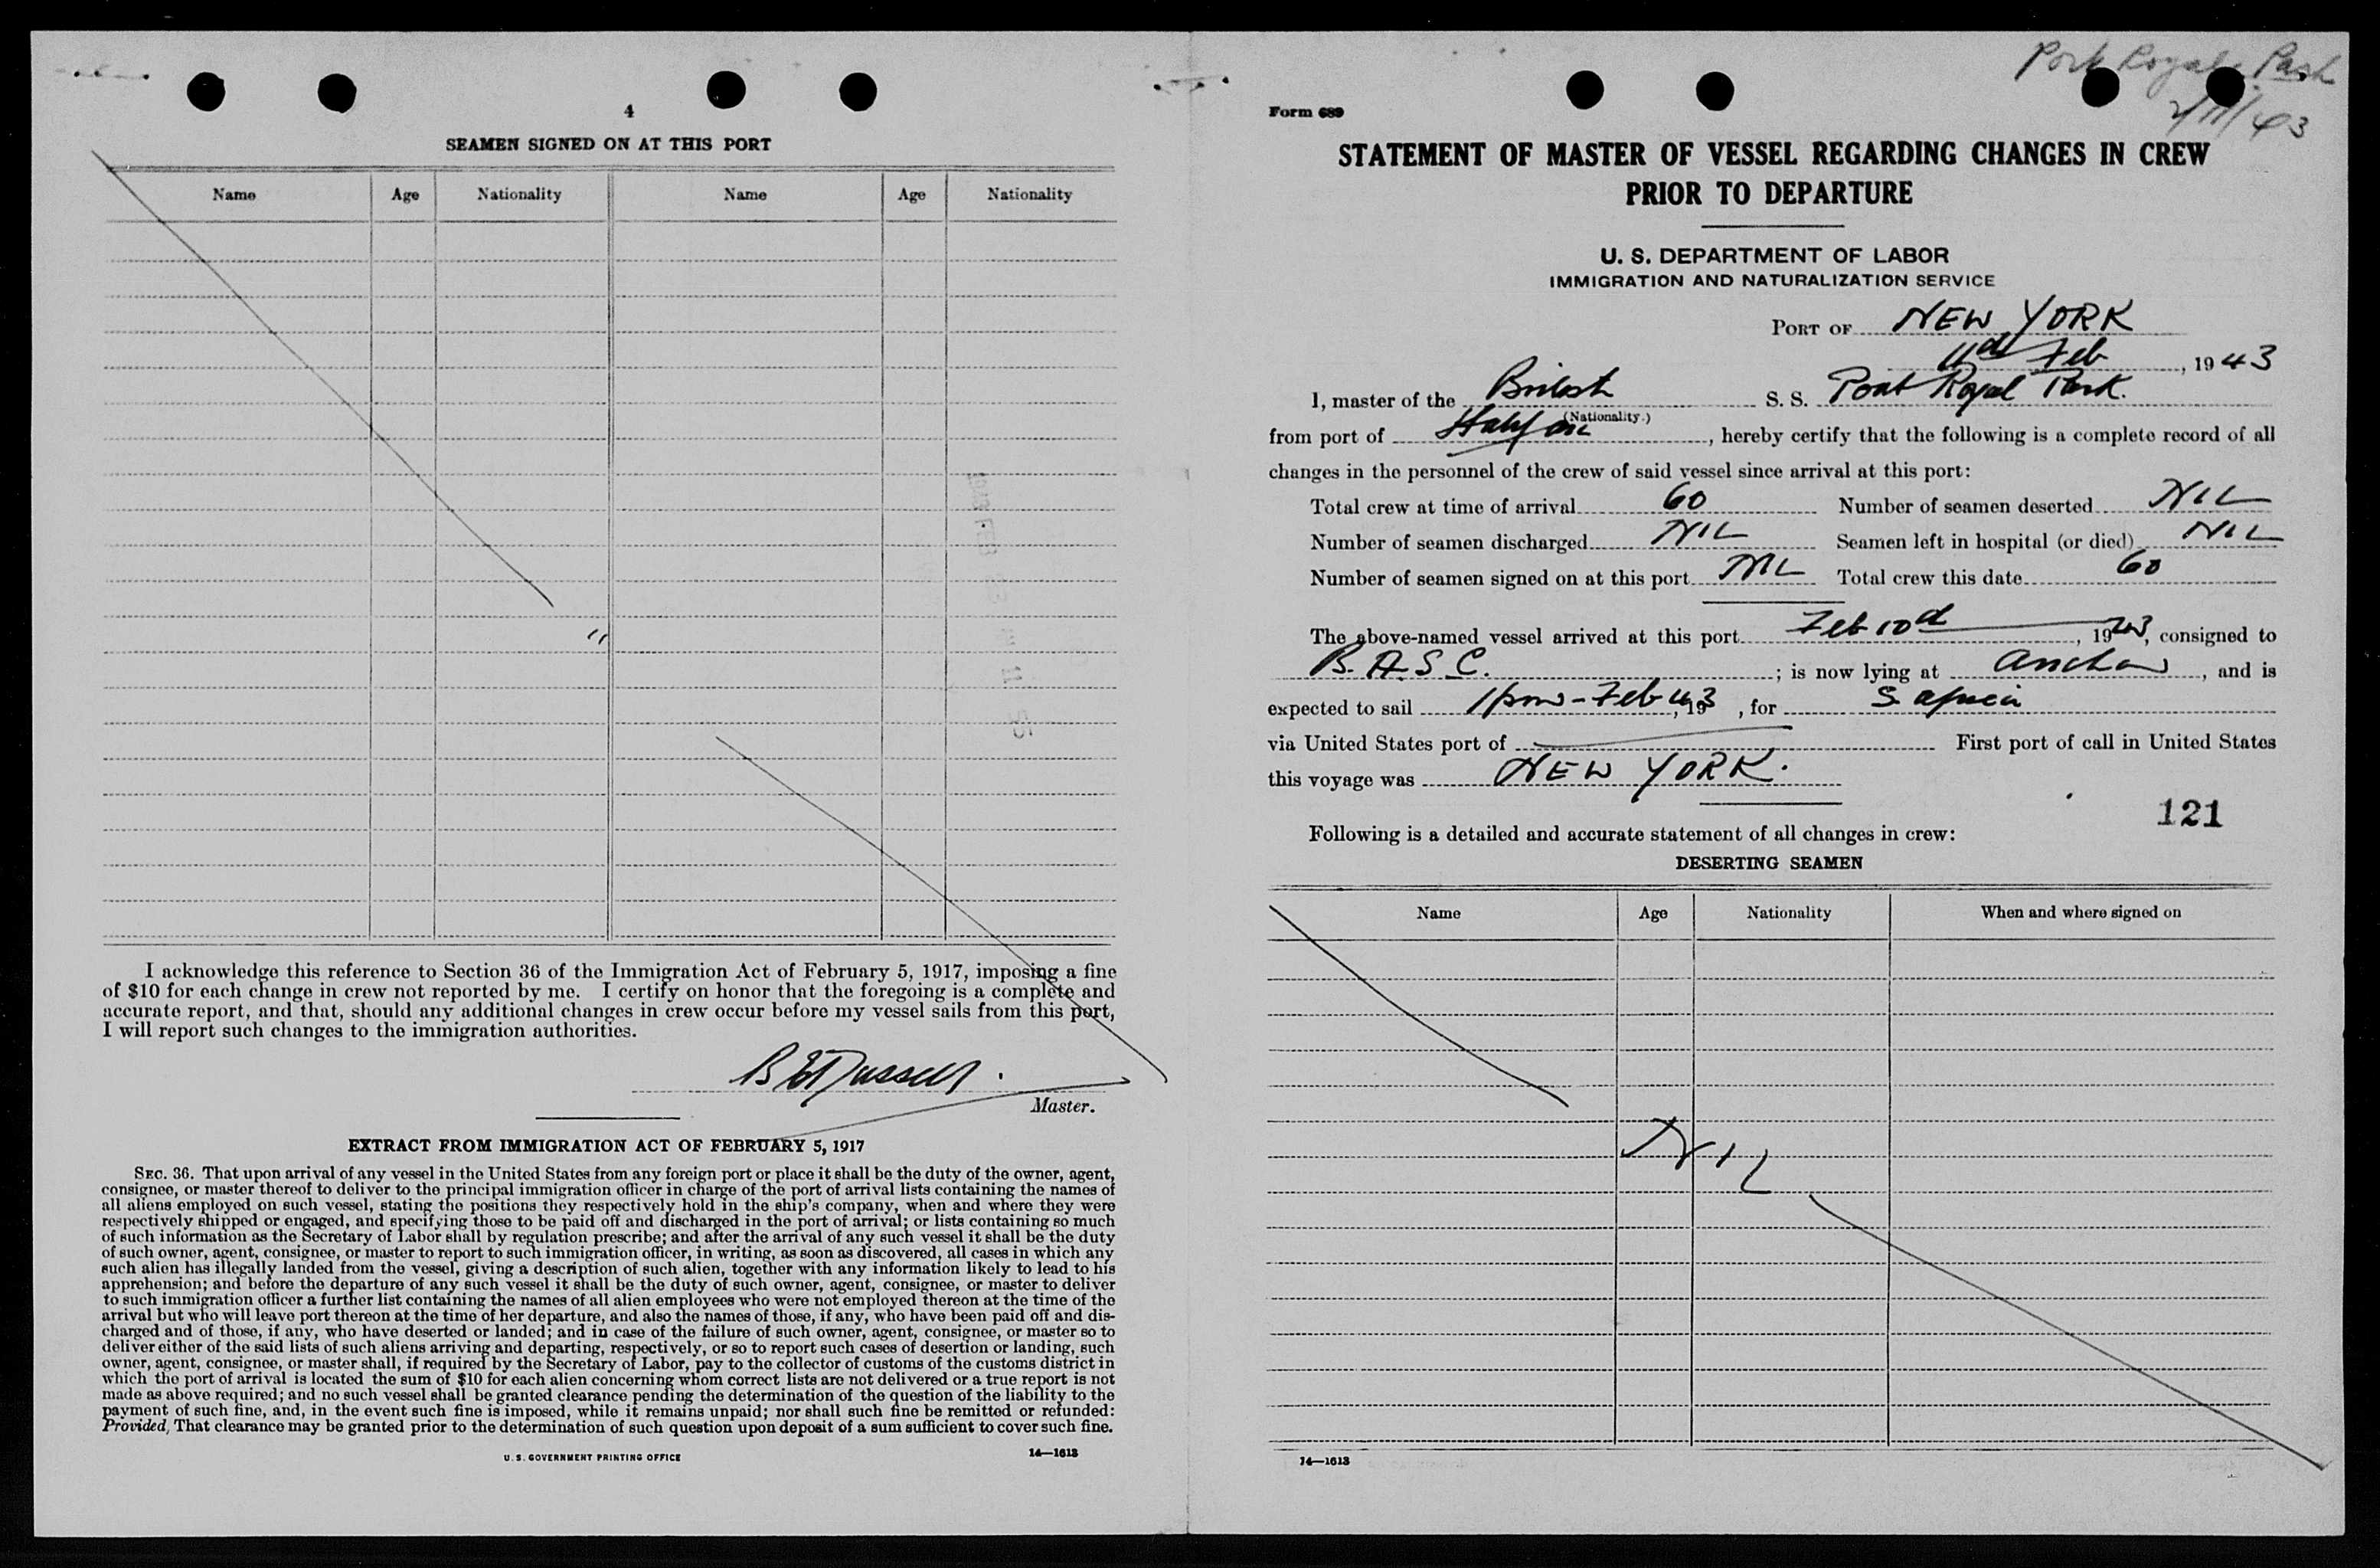 4
SEAMEN SIGNED ON AT THIS PORT
Name Age Nationality Name Age Nationality
"
I acknowledge this reference to Section 36 of the Immigration Act of February 5, 1917, imposing a fine
of $10 for each change in crew not reported by me. I certify on honor that the foregoing is a complete and
accurate report, and that, should any additional changes in crew occur before my vessel sails from this port,
I will report such changes to the immigration authorities.
Master.
EXTRACT FROM IMMIGRATION ACT OF FEBRUARY 5, 1917
SEC. 36. That upon arrival of any vessel in the United States from any foreign port or place it shall be the duty of the owner, agent,
consignee, or master thereof to deliver to the principal immigration officer in charge of the port of arrival lists containing the names of
all aliens employed on such vessel, stating the positions they respectively hold in the ship's company, when and where they were
respectively shipped or engaged, and specifying those to be paid off and discharged in the port of arrival; or lists containing so much
of such information as the Secretary of Labor shall by regulation prescribe; and after the arrival of any such vessel it shall be the duty
of such owner, agent, consignee, or master to report to such immigration officer, in writing, as soon as discovered, all cases in which any
such alien has illegally landed from the vessel, giving a description of such alien, together with any information likely to lead to his
apprehension; and before the departure of any such vessel it shall be the duty of such owner, agent, consignee, or master to deliver
to such immigration officer a further list containing the names of all alien employees who were not employed thereon at the time of the
arrival but who will leave port thereon at the time of her departure, and also the names of those, if any, who have been paid off and dis-
charged and of those, if any, who have deserted or landed; and in case of the failure of such owner, agent, consignee, or master so to
deliver either of the said lists of such aliens arriving and departing, respectively, or so to report such cases of desertion or landing, such
owner, agent, consignee, or master shall, if required by the Secretary of Labor, pay to the collector of customs of the customs district in
which the port of arrival is located the sum of $10 for each alien concerning whom correct lists are not delivered or a true report is not
made as above required; and no such vessel shall be granted clearance pending the determination of the question of the liability to the
payment of such fine, and, in the event such fine is imposed, while it remains unpaid; nor shall such fine be remitted or refunded:
Provided, That clearance may be granted prior to the determination of such question upon deposit of a sum sufficient to cover such fine.
U. S. GOVERNMENT PRINTING OFFICE 14—1613
Port Royal Park
2/11/43
Form 689
STATEMENT OF MASTER OF VESSEL REGARDING CHANGES IN CREW
PRIOR TO DEPARTURE
U. S. DEPARTMENT OF LABOR
IMMIGRATION AND NATURALIZATION SERVICE
PORT OF NEW YORK
11th Feb, 1943
I, master of the British S. S. Port Royal Park.
(Nationality.)
from port of Halifax, hereby certify that the following is a complete record of all
changes in the personnel of the crew of said vessel since arrival at this port:
Total crew at time of arrival 60 Number of seamen deserted NIL
Number of seamen discharged NIL Seamen left in hospital (or died) NIL
Number of seamen signed on at this port NIL Total crew this date 60
The above-named vessel arrived at this port Feb 10th, 1943, consigned to
B.A.S.C.; is now lying at Anchor, and is
expected to sail 1pm - Feb 1943, for S. Africa
via United States port of First port of call in United States
this voyage was NEW YORK.
121
Following is a detailed and accurate statement of all changes in crew:
DESERTING SEAMEN
Name Age Nationality When and where signed on
NIL
14—1613